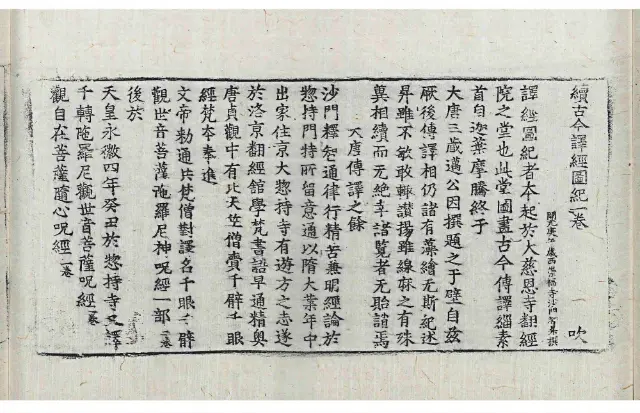 續古今譯經圖紀一卷 吹
開元庚午歲西崇福寺沙門智昇撰
譯經圖紀者本起於大慈恩寺翻經
院之堂也此堂圖畫古今傳譯緇素
首自迦葉摩騰終于
大唐三藏邁公因撰題之于壁自茲
厥後傳譯相仍諸有藻繪無斯紀述
昇雖不敏敢輒讚揚雖線麻之有殊
冀相續而無絶幸諸覽者無貽誚焉
大唐傳譯之餘
沙門釋智通律行精苦兼明經論於
惣持門特所留意通以隋大業年中
出家住京大惣持寺有遊方之志遂
於洛京翻經館學梵書語早通精奧
唐貞觀中有北天竺僧賷千臂千眼
經梵夲奉進
文帝勅通共梵僧對譯名千眼千臂
觀世音菩薩陁羅尼神呪經一部二卷
後於
天皇永徽四年癸丑於惣持寺又譯
千轉陁羅尼觀世音菩薩呪經一卷
觀自在菩薩隨心呪經一卷